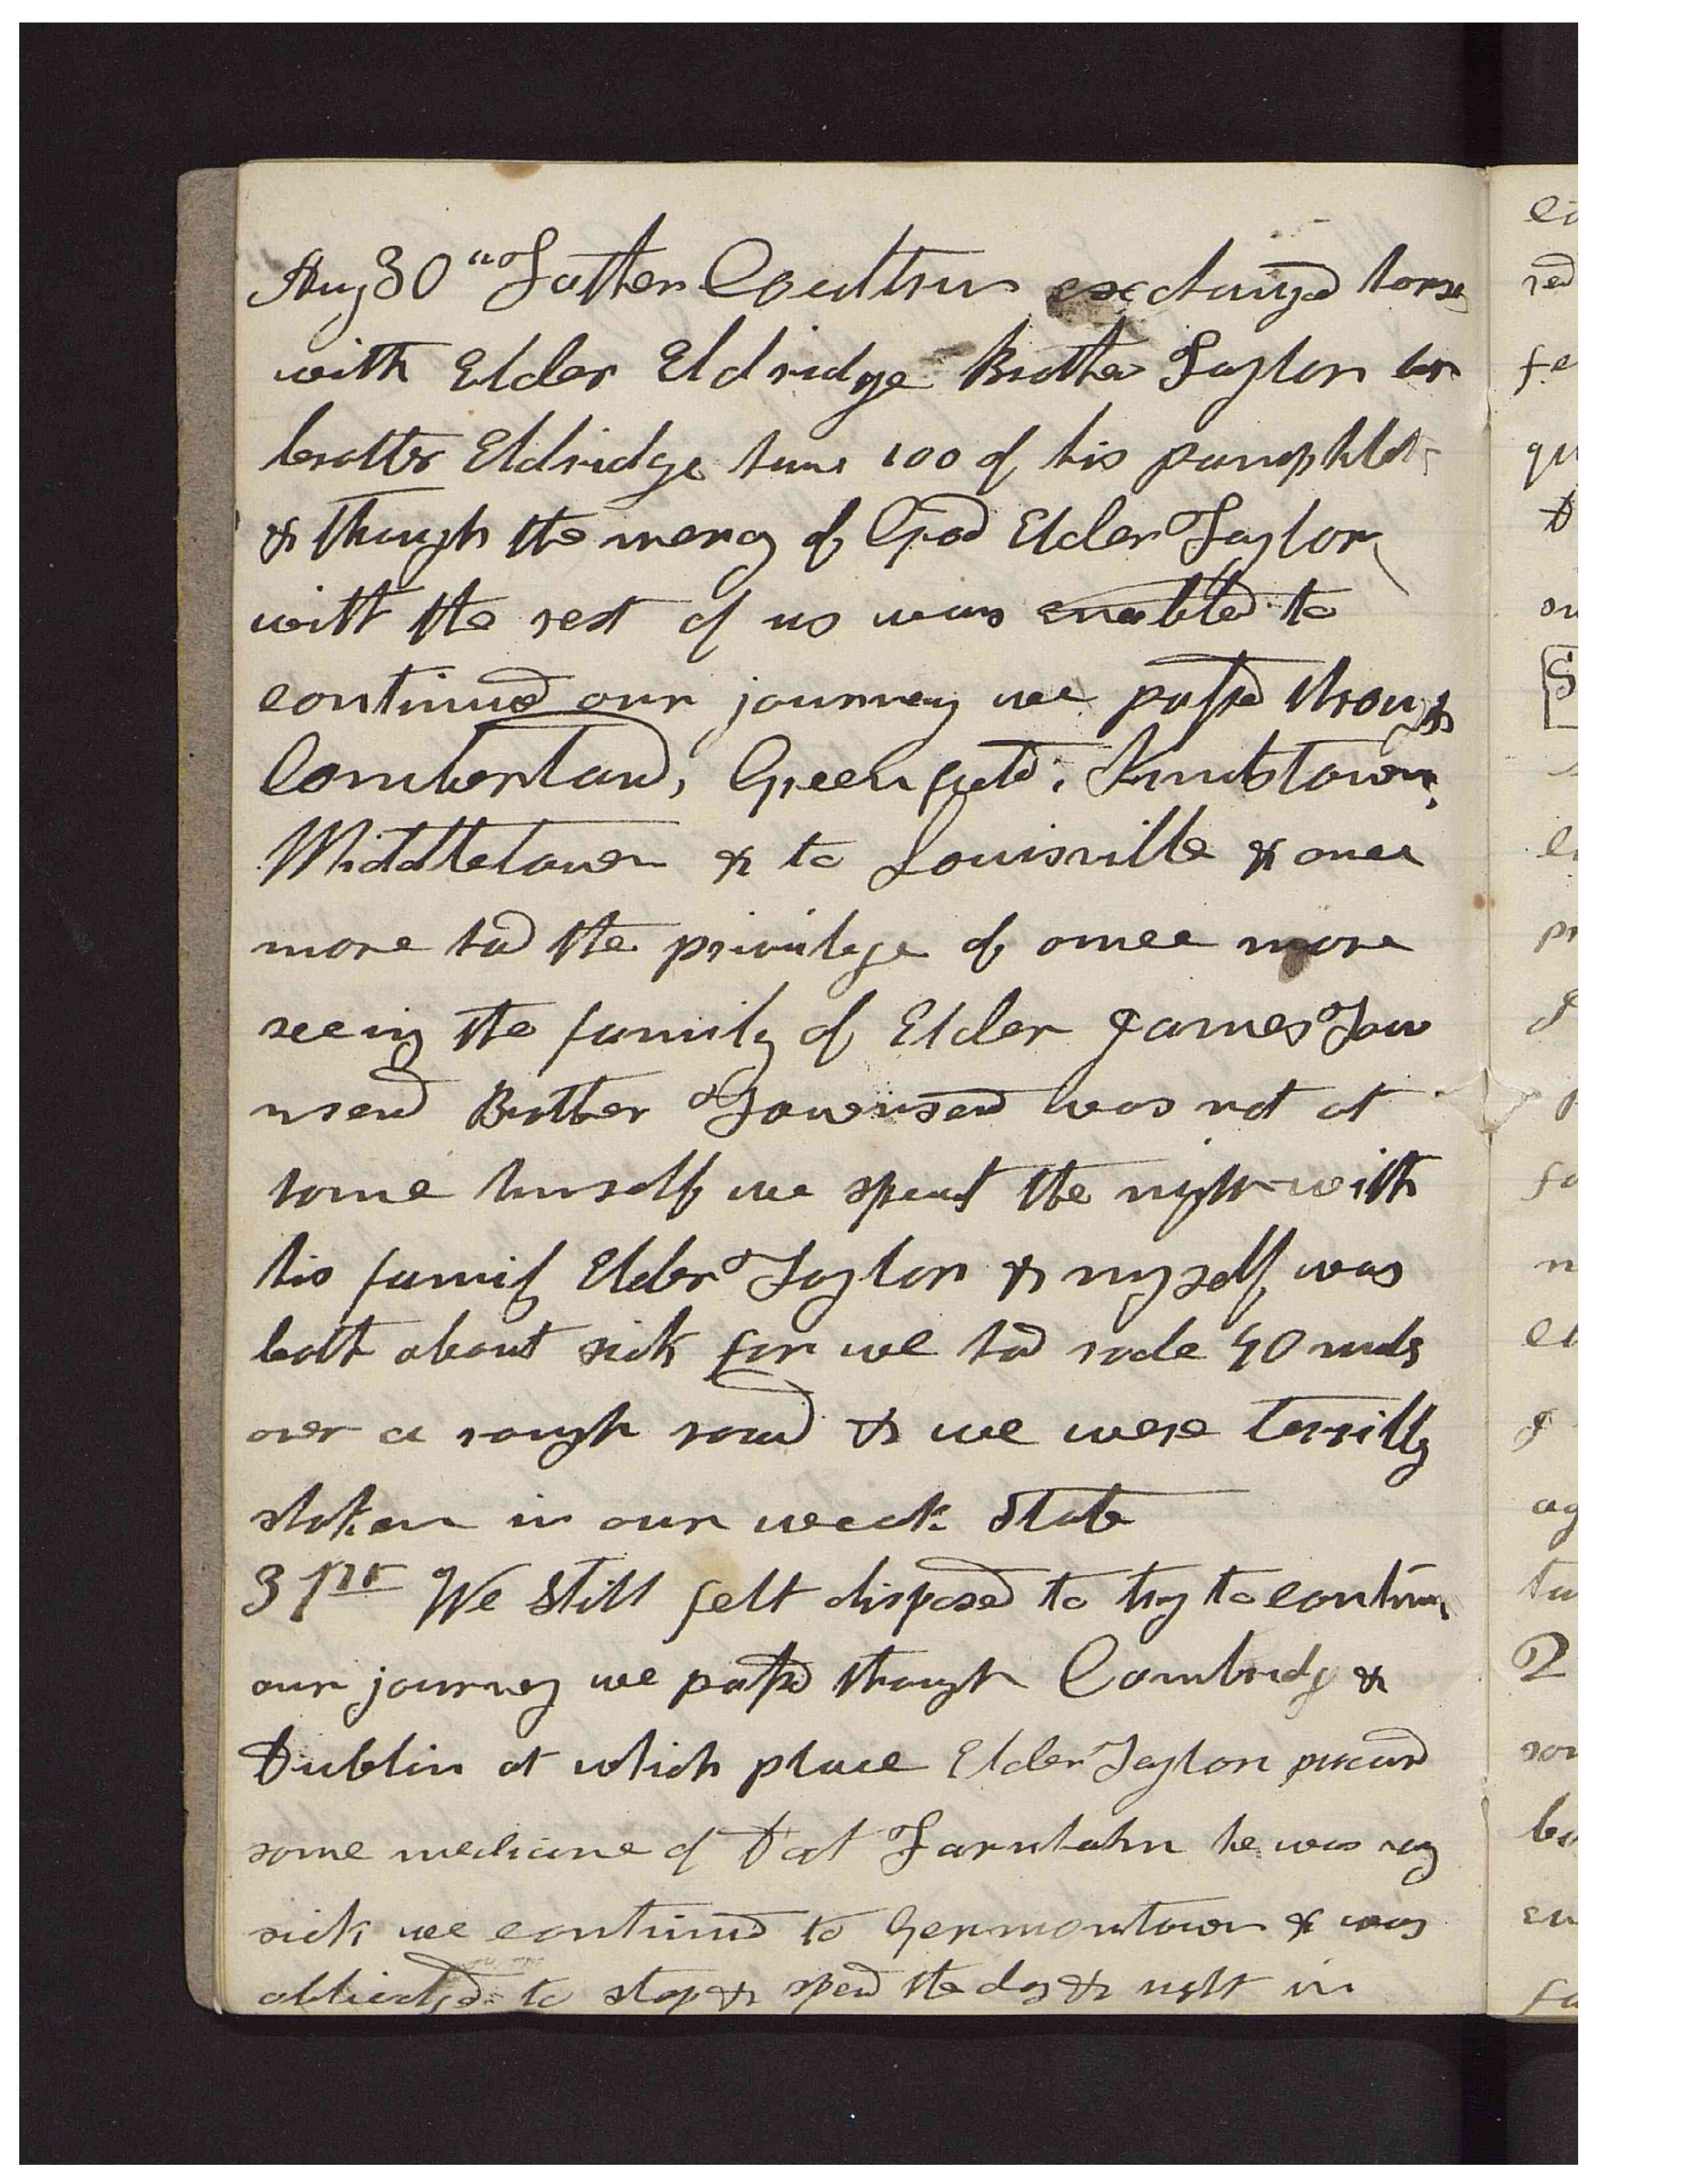 Aug 30th Father Coultrin exchangd horse
with Elder Eldridge Brother Taylor let
brother Eldridge have 100 of his pamphlets
& through the mercy of God Elder Taylor
with the rest of us was enabled to
continued our journey we passd through
Comberland, Greenfield, Knightstown,
Middletown & to Louisville & once
more had the privilege of once more
seeing the family of Elder James Tow
nsend Brother Townsend was not at
home himself we spent the night with
his family Elder Taylor & myself was
both about sick for we had rode 40 miles
over a rough road & we were terribly
shaken in our weak state
31st We still felt disposed to try to continue
our journey we passd through Cambridge &
Dublin at which place Elder Taylor procured
some medicine of Doct he was very
sick we continued to Germontown & was
obliedgd to stop & spend the day & night in